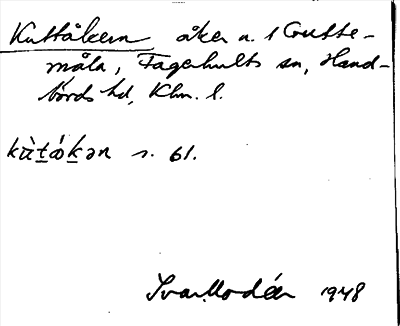 Kuttåkern åker n. 1 Grytte-
måla, Fagerhults sn, Hand-
börds hd, Klm. l.
kùtǻkən s. 61.
Ivar Modéer 1948